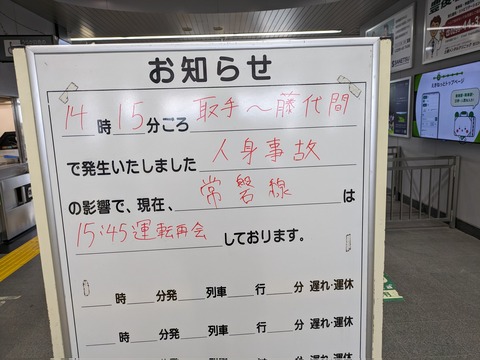 お知らせ
14時15分ごろ 取手～藤代間
で発生いたしました 人身事故
の影響で、現在、常磐線は
15:45運転再会しております。
時 分発 列車 行 分 遅れ・運休
時 分発 列車 行 分 遅れ・運休
えきねっとトップページ